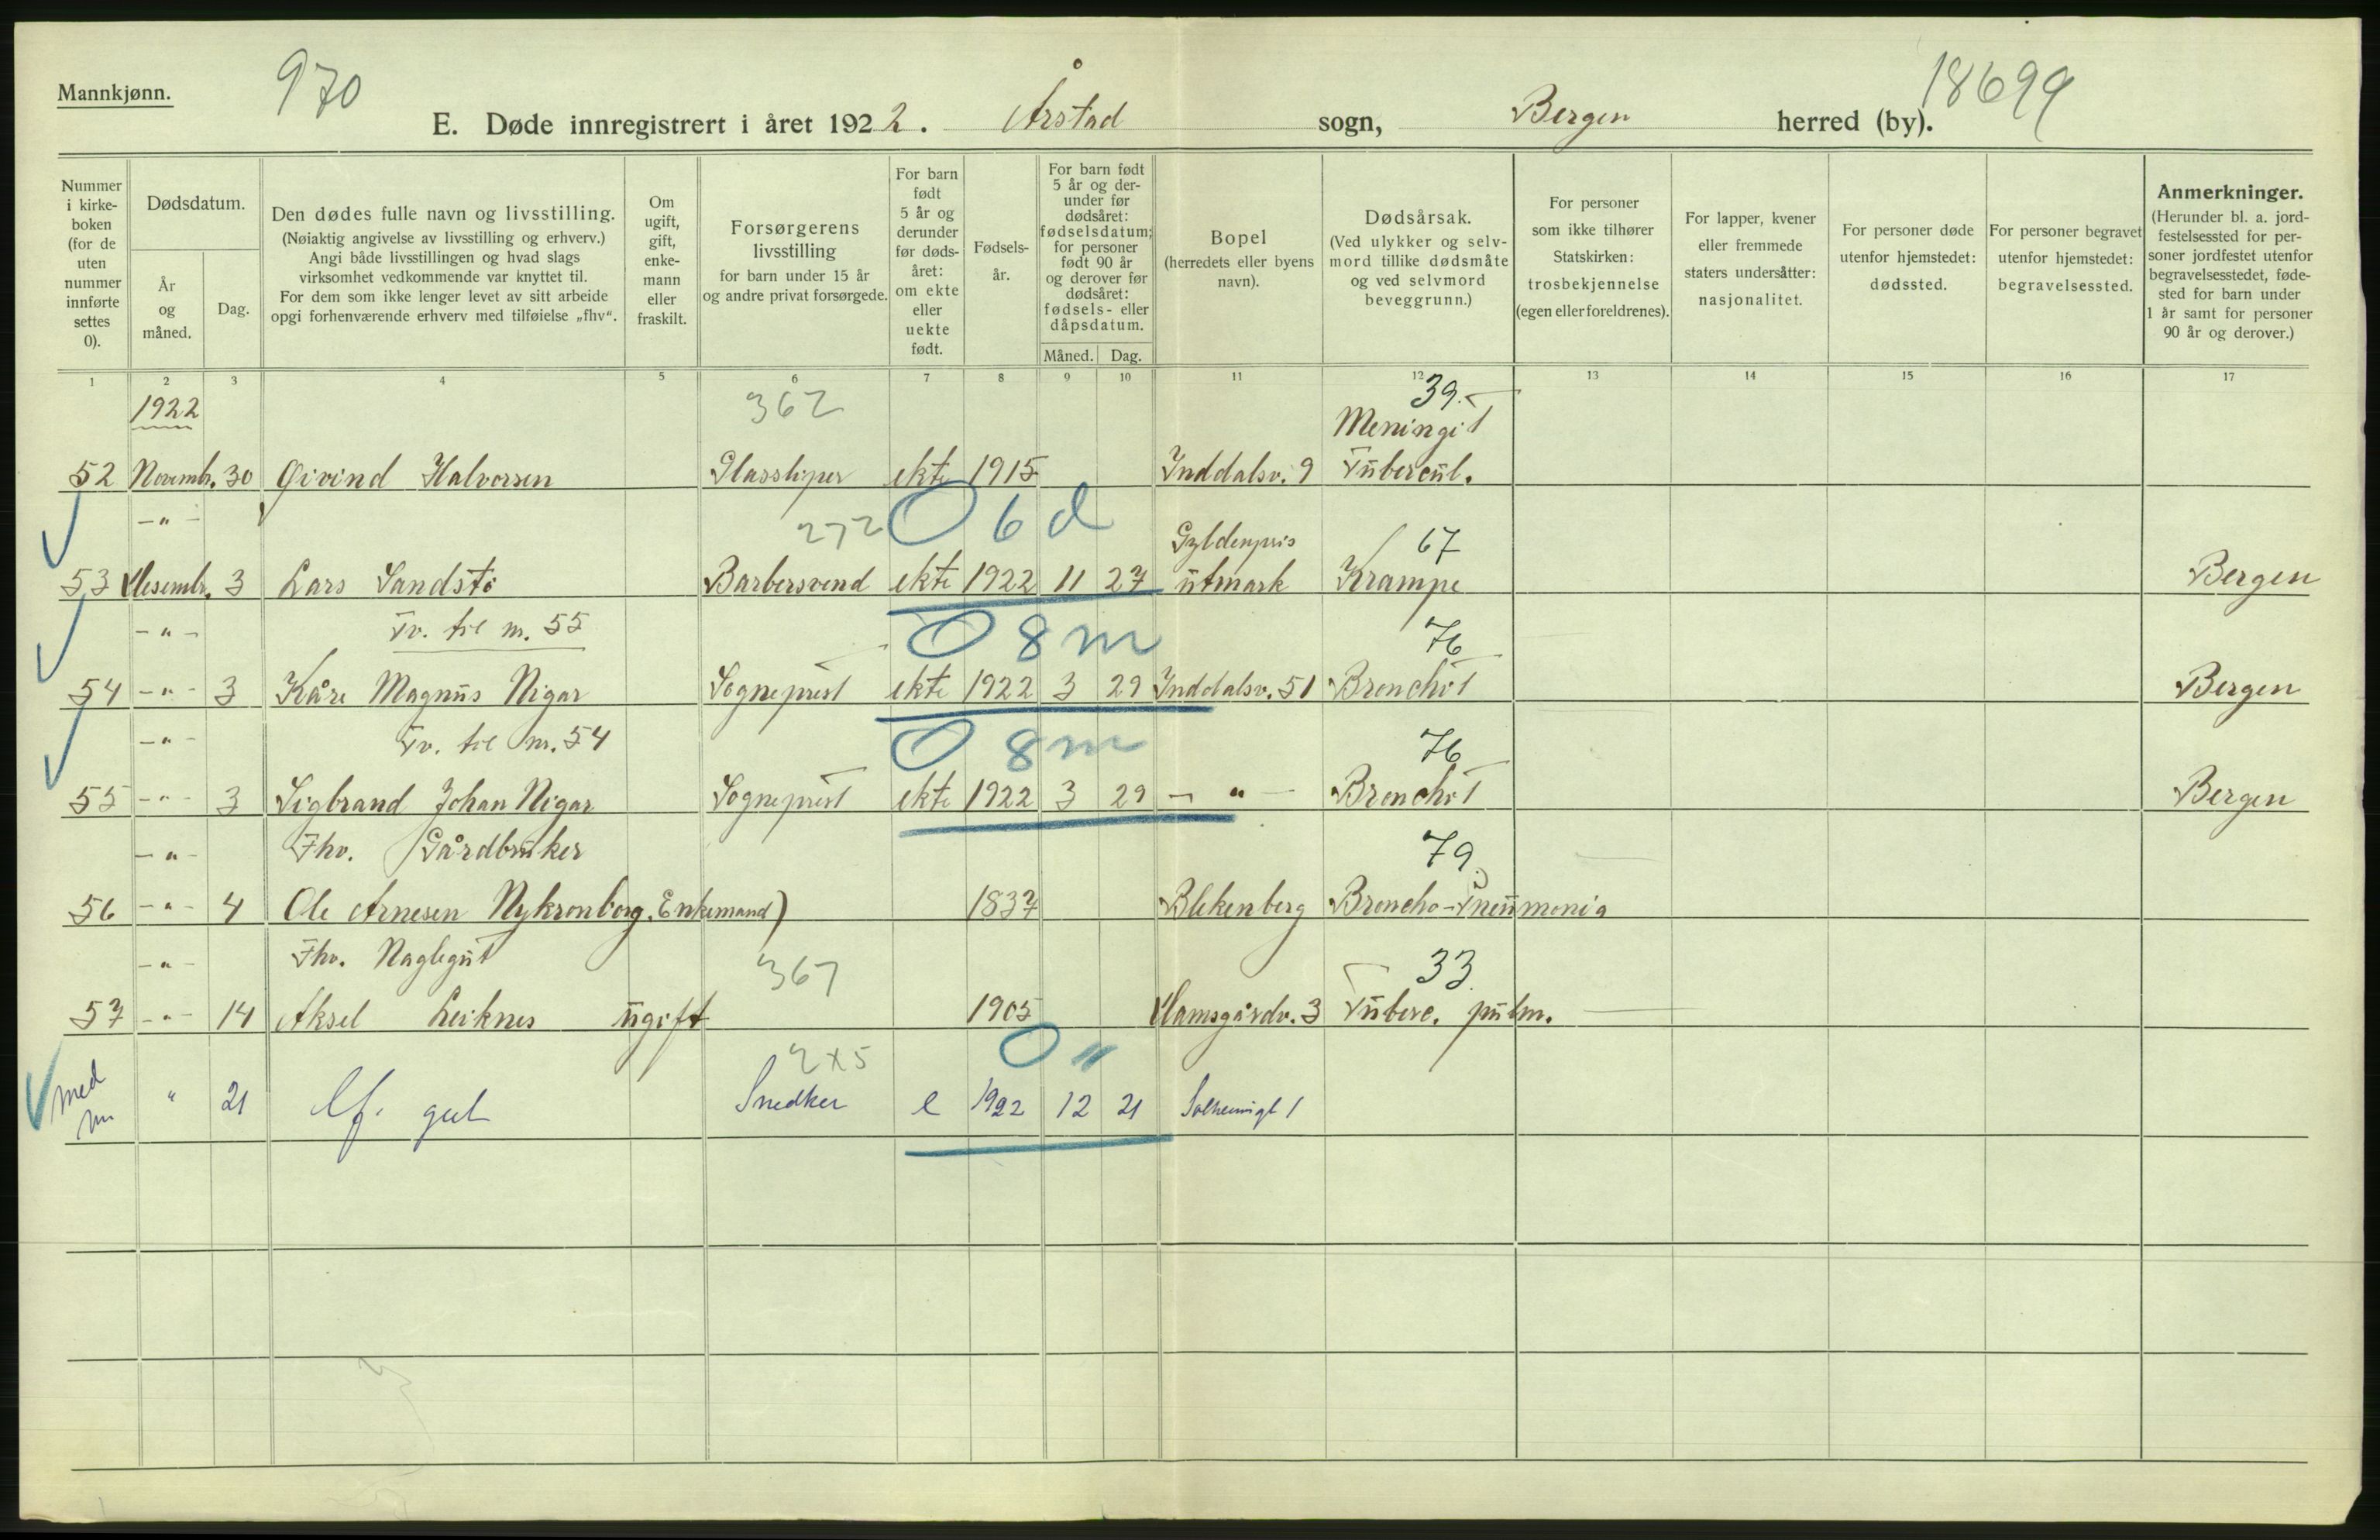 Mannkjønn.
970
18699
E. Døde innregistrert i året 1922. Årstad sogn, Bergen herred (by).
Nummer i kirke-boken (for de uten nummer innførte settes 0).
Dødsdatum.
År og måned.
Dag.
Den dødes fulle navn og livsstilling.
(Nøiaktig angivelse av livsstilling og erhverv.)
Angi både livsstillingen og hvad slags
virksomhet vedkommende var knyttet til.
For dem som ikke lenger levet av sitt arbeide
opgi forhenværende erhverv med tilføielse „fhv“.
Om ugift, gift, enke-mann eller fraskilt.
Forsørgerens livsstilling
for barn under 15 år
og andre privat forsørgede.
For barn født 5 år og derunder før døds-året: om ekte eller uekte født.
Fødsels-år.
For barn født 5 år og der-under før dødsåret: fødselsdatum; for personer født 90 år og derover før dødsåret: fødsels- eller dåpsdatum.
Måned. Dag.
Bopel
(herredets eller byens navn).
Dødsårsak.
(Ved ulykker og selv-mord tillike dødsmåte og ved selvmord beveggrunn.)
For personer som ikke tilhører Statskirken: trosbekjennelse (egen eller foreldrenes).
For lapper, kvener eller fremmede staters undersåtter: nasjonalitet.
For personer døde utenfor hjemstedet: dødssted.
For personer begravet utenfor hjemstedet: begravelsessted.
Anmerkninger.
(Herunder bl. a. jord-festelsessted for per-soner jordfestet utenfor begravelsesstedet, føde-sted for barn under 1 år samt for personer 90 år og derover.)
1 2 3 4 5 6 7 8 9 10 11 12 13 14 15 16 17
1922 362 39.
Meningit
52 Novemb. 30 Øivind Halvorsen Glassliper ekte 1915 Inddalsv. 9 Tubercul.
-"- 272 0 6 d Gyldenpris 67
53 Desembr. 3 Lars Sandstø Barbersvend ekte 1922 11 27 utmark Krampe Bergen
-"- Tv. til nr. 55 0 8 m 76
54 -"- 3 Kåre Magnus Nigar Sogneprest ekte 1922 3 29 Inddalsv. 51 Bronchit Bergen
-"- Tv. til nr. 54 0 8 m 76
55 -"- 3 Sigbrand Johan Nigar Sogneprest ekte 1922 3 29 -"- Bronchit Bergen
-"- Fhv. Gårdbruker 79
56 -"- 4 Ole Arnesen Nykronborg. Enkemand) 1837 Blekenberg Broncho-Pneumonia
-"- Fhv. Naglegut 367 33
57 -"- 14 Aksel Leiknes ugift 1905 Damsgårdv. 3 Tuberc. pulm.
2x5 0 "
med " 21 gut Snedker e 1922 12 21 1